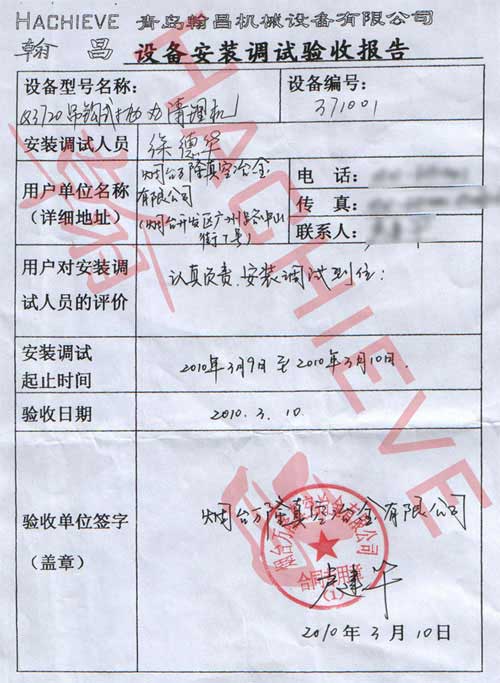 HACHIEVE 青岛翰昌机械设备有限公司
翰 昌 设备安装调试验收报告
设备型号名称:
Q3720吊钩式抛丸清理机
设备编号:
371001
安装调试人员
徐德华
用户单位名称
(详细地址)
烟台万隆真空冶金
有限公司
(烟台开发区广州路
街7号)
电 话:
传 真:
联系人:
用户对安装调
试人员的评价
认真负责.安装调试到位;
安装调试
起止时间
2010年3月9日至2010年3月10日.
验收日期
2010.3.10
验收单位签字
(盖章)
烟台万隆真空冶金有限公司
烟台万隆真空冶金有限公司
合同专用章
(1)
2010年3月10日
HACHIEVE
翰昌